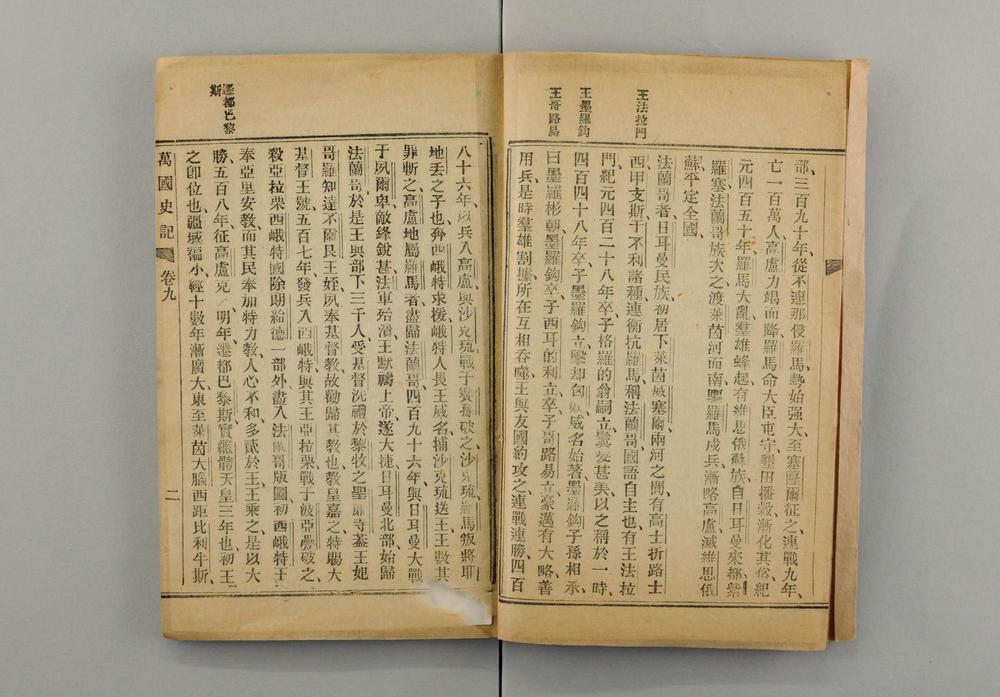 王法拉門
王墨羅鈎
王哥路易
部三百九十年從不連那侵羅馬勢始强大至塞薩爾征之連戰九年、
亡一百萬人高盧力竭而降羅馬命大臣屯守墾田播穀漸化其俗紀
元四百五十年羅馬大亂羣雄蜂起有維思俄蘇族自日耳曼來都紫
羅塞法蘭哥族次之渡萊茵河而南驅羅馬戍兵漸略高盧滅維思俄
蘇平定全國
法蘭哥者日耳曼民族初居下萊茵威塞爾兩河之間有高士折路士
西甲支斯于不利諸種連衡抗羅馬稱法蘭哥國語自主也有王法拉
門紀元四百二十八年卒子格羅的翁嗣立鬚髮甚美以之稱於一時、
四百四十八年卒子墨羅鈎立擊却匈奴威名始著墨羅鈎子孫相承、
曰墨羅彬朝墨羅鈎卒子西耳的利立卒子哥路易立豪邁有大略善
用兵是時羣雄割據所在互相吞噬王與友國約攻之連戰連勝四百
遷都巴黎
斯
八十六年以兵入高盧與沙克琉戰于賓孫破之沙克琉羅馬叛將耶
地丟之子也奔西峨特求援峨特人長王威名捕沙克琉送王王數其
罪斬之高盧地屬羅馬者盡歸法蘭哥四百九十六年與日耳曼大戰
于夙爾卑敵鋒銳甚法軍殆潰王默禱上帝遂大捷日耳曼北部始歸
法蘭哥於是王與部下三千人受基督洗禮於黎牧之聖 寺蓋王妃
哥羅知達不爾艮王姪夙奉基督教故勸歸其教也教皇嘉之特賜大
基督王號五百七年發兵入西峨特與其王亞拉栗戰于波亞 破之
殺亞拉栗西峨特國除期給德一部外盡入法蘭哥版圖初西峨特王
奉亞里安教而其民奉加特力教人心不和多貳於王王乘之是以大
勝五百八年征高盧克 明年遷都巴黎斯實繼體天皇三年也初王
之卽位也疆域褊小經十數年漸廣大東至萊茵大腦西距比利牛斯
萬國史記
卷九
二